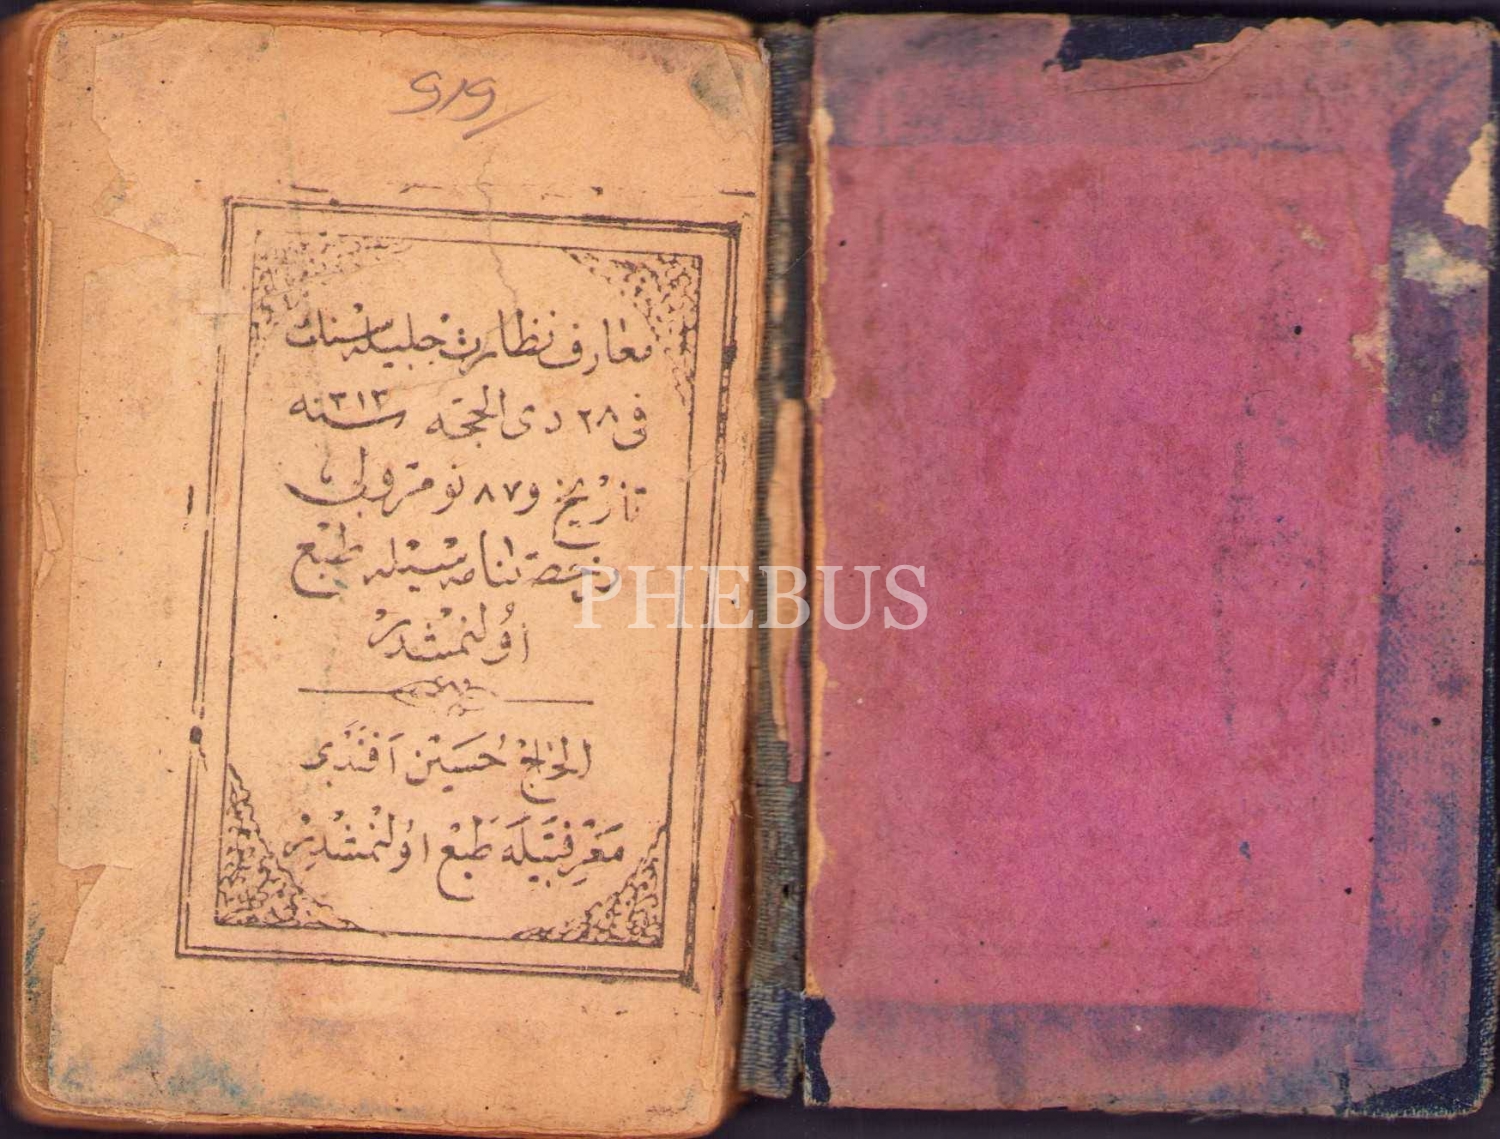 معارف نظارت جليله سنك
فى ٢٨ ذى الحجه سنه ٣١٣
تاريخ و ٨٧ نومرولى
رخصتنامه سيله طبع
اولنمشدر
الحاج حسين افندى
معرفتيله طبع اولنمشدر
PHEBUS